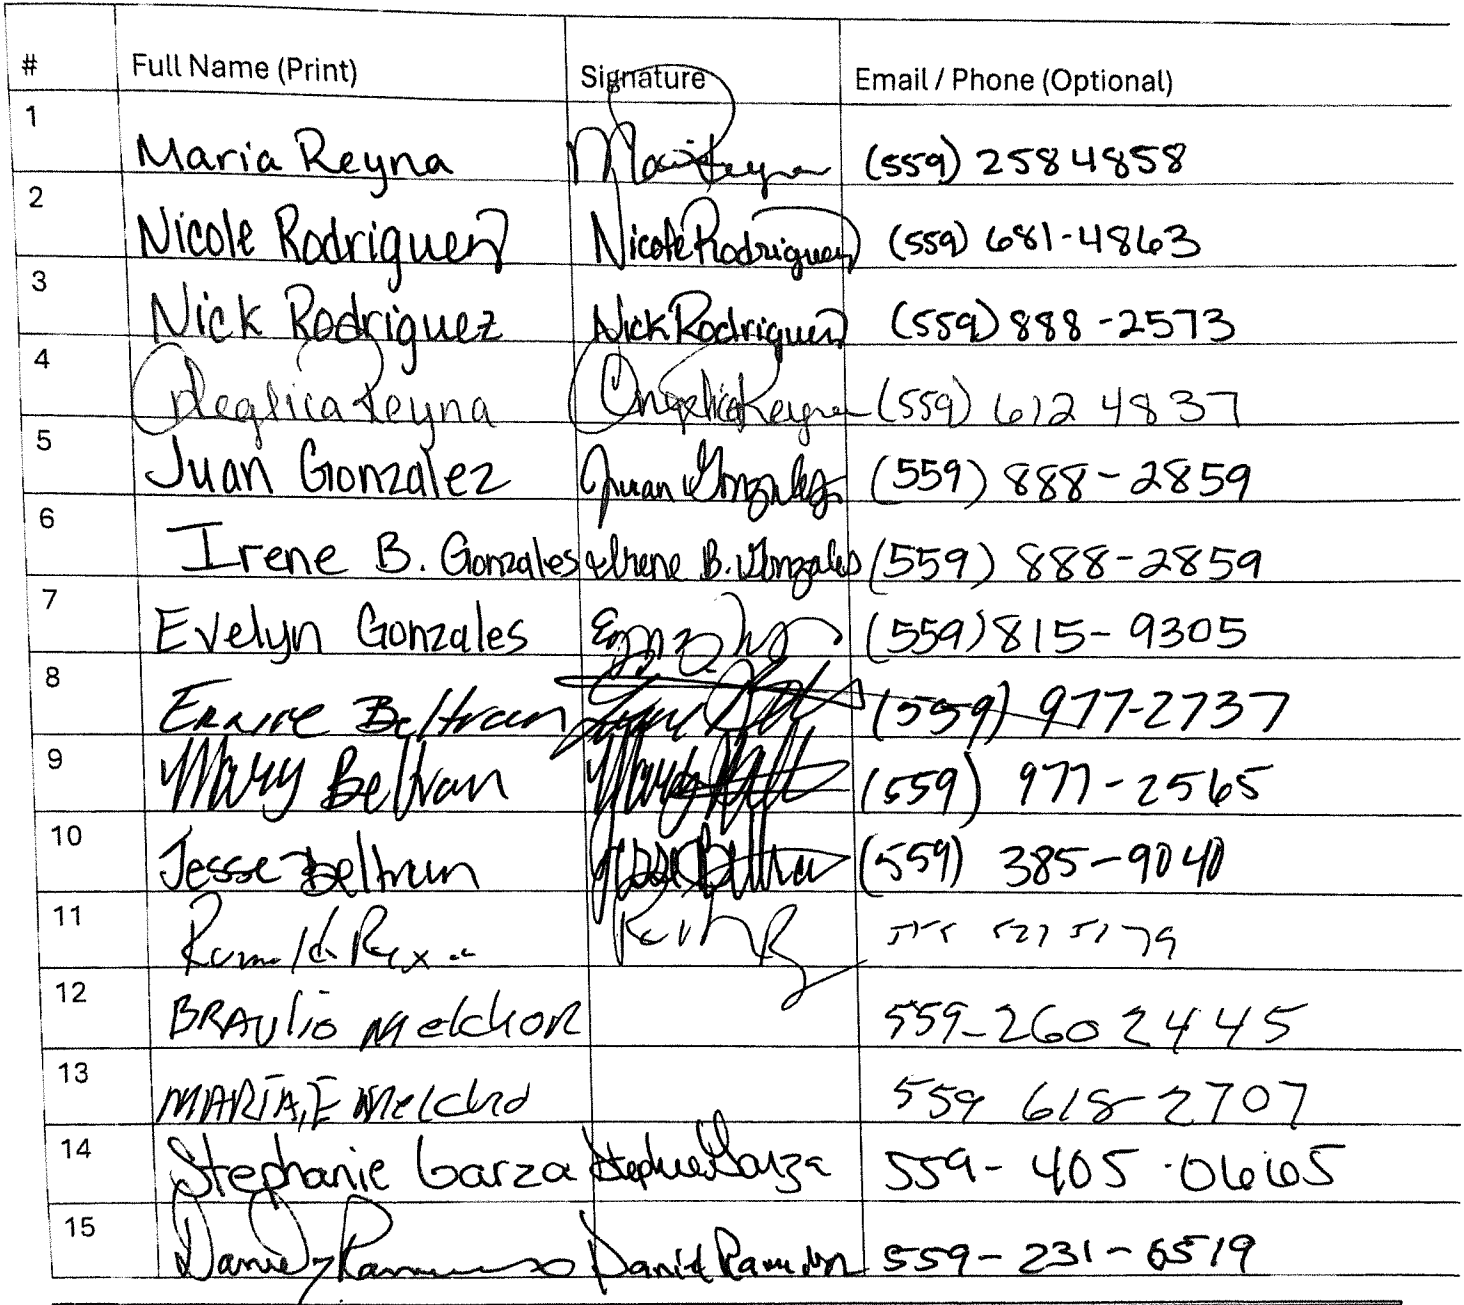 # Full Name (Print) Signature Email / Phone (Optional)
1 Maria Reyna Maria Reyna (559) 258 4858
2 Nicole Rodriguez Nicole Rodriguez (559) 681-4863
3 Nick Rodriguez Nick Rodriguez (559) 888-2573
4 Reyna Angelica Reyna (559) 612 4837
5 Juan Gonzalez Juan Gonzalez (559) 888-2859
6 Irene B. Gonzales Irene B. Gonzales (559) 888-2859
7 Evelyn Gonzales (559) 815-9305
8 Beltran (559) 977-2737
9 Mary Beltran Mary (559) 977-2565
10 Jesse Beltran Jesse Beltran (559) 385-9040
11
12 BRAulio Melchor 559-260 2445
13 MARIA, E Melchd 559 618-2707
14 Stephanie Garza Stephanie Garza 559-405-0665
15 Daniel 559-231-6519